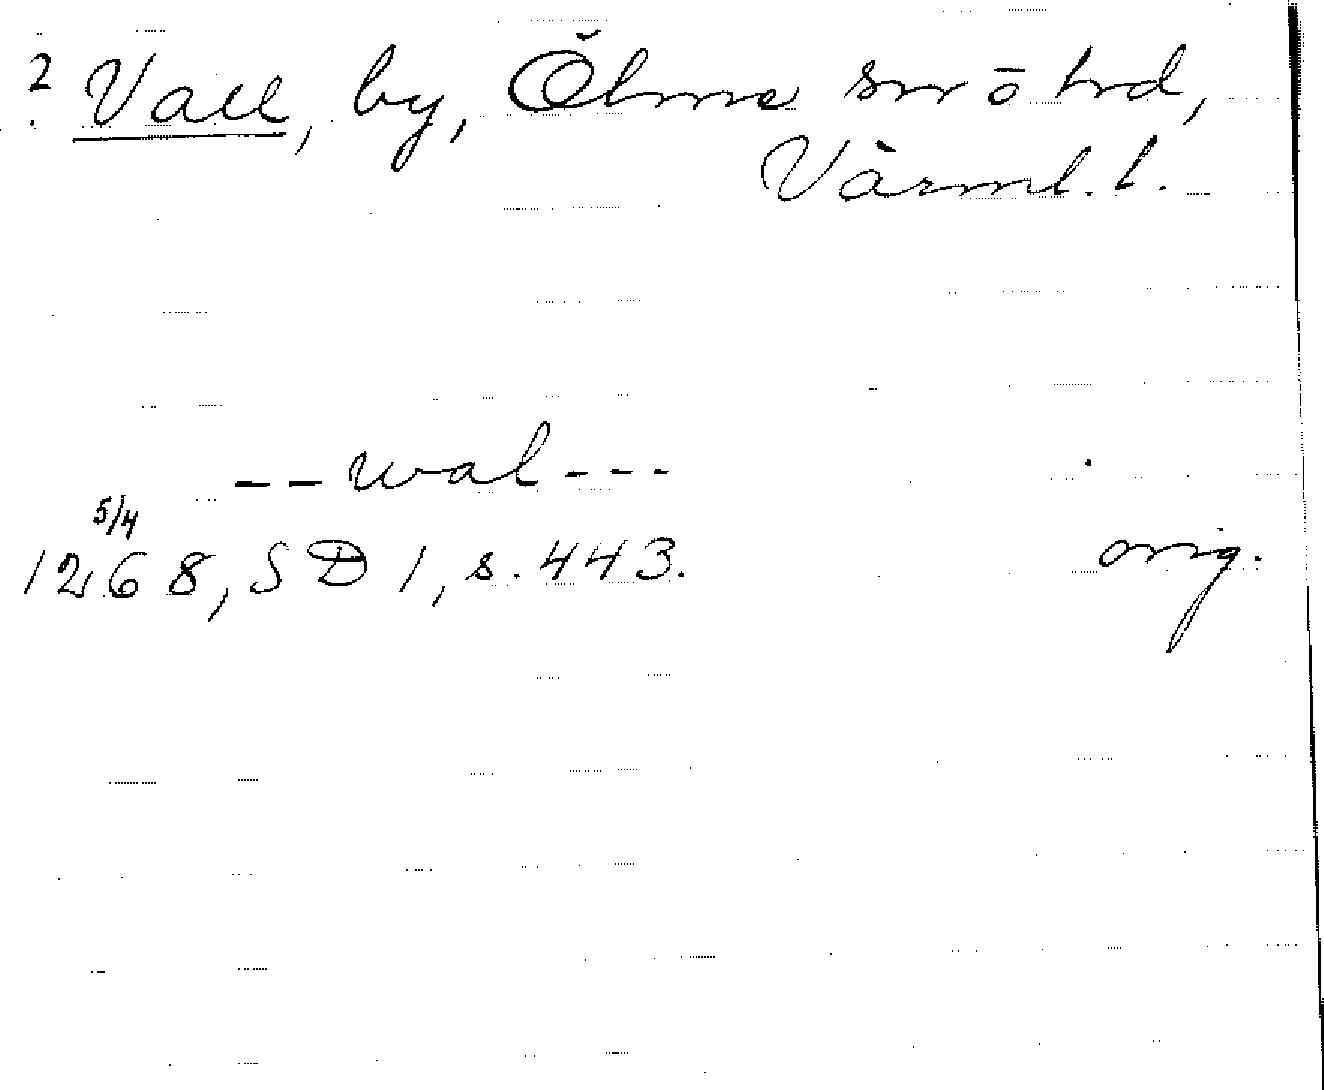 ? Vall, by, Ölme sn o hd,
Värml. l.
-- wal ---
5/4
1268, SD 1, s. 443. orig.